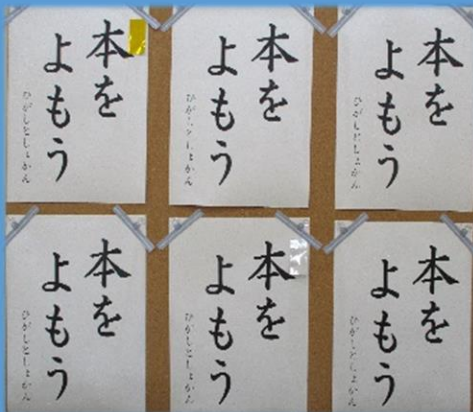 本を
よもう
ひがしとしょかん
本を
よもう
ひがしとしょかん
本を
よもう
ひがしとしょかん
本を
よもう
ひがしとしょかん
本を
よもう
ひがしとしょかん
本を
よもう
ひがしとしょかん